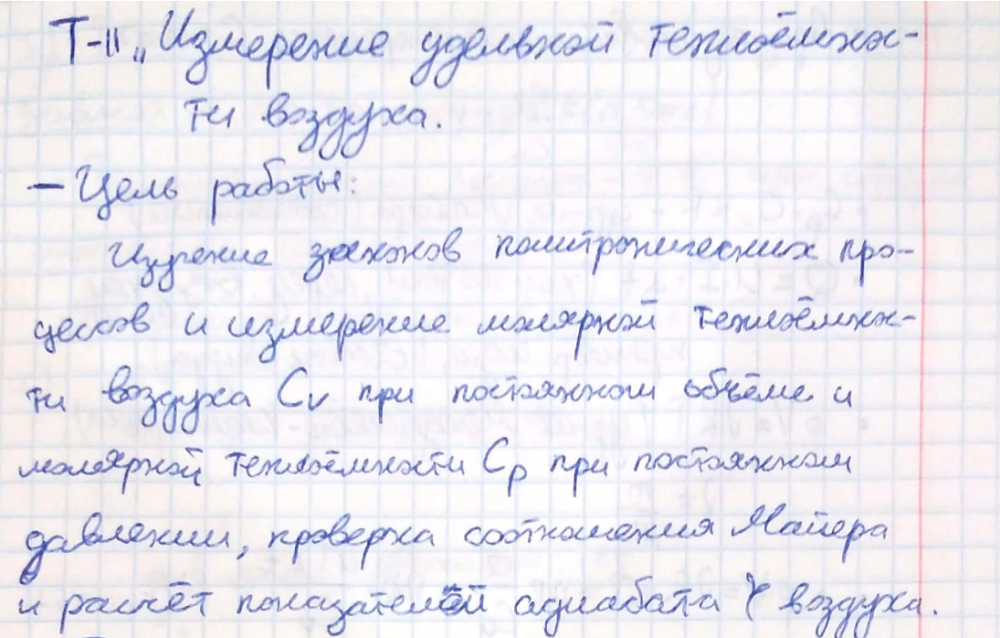 Т-11 „Измерение удельной теплоёмкос-
ти воздуха.
— Цель работы:
Изучение законов политропических про-
цессов и измерение молярной теплоёмкос-
ти воздуха Cv при постоянном объёме и
молярной теплоёмкости Cp при постоянном
давлении, проверка соотношения Майера
и расчёт показателей адиабата γ воздуха.